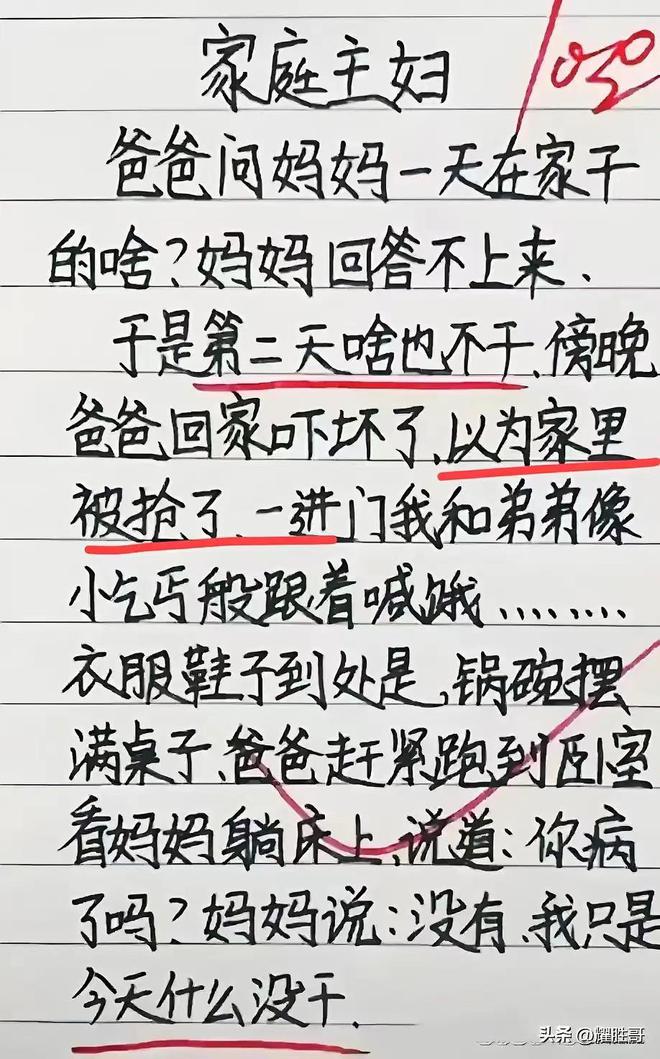 家庭主妇
100
爸爸问妈妈一天在家干
的啥?妈妈回答不上来、
于是第二天啥也不干、傍晚
爸爸回家吓坏了、以为家里
被抢了、一进门我和弟弟像
小乞丐般跟着喊饿………
衣服鞋子到处是,锅碗摆
满桌子、爸爸赶紧跑到卧室
看妈妈躺床上,说道:你病
了吗?妈妈说:没有、我只是
今天什么没干.
头条 @耀胜哥